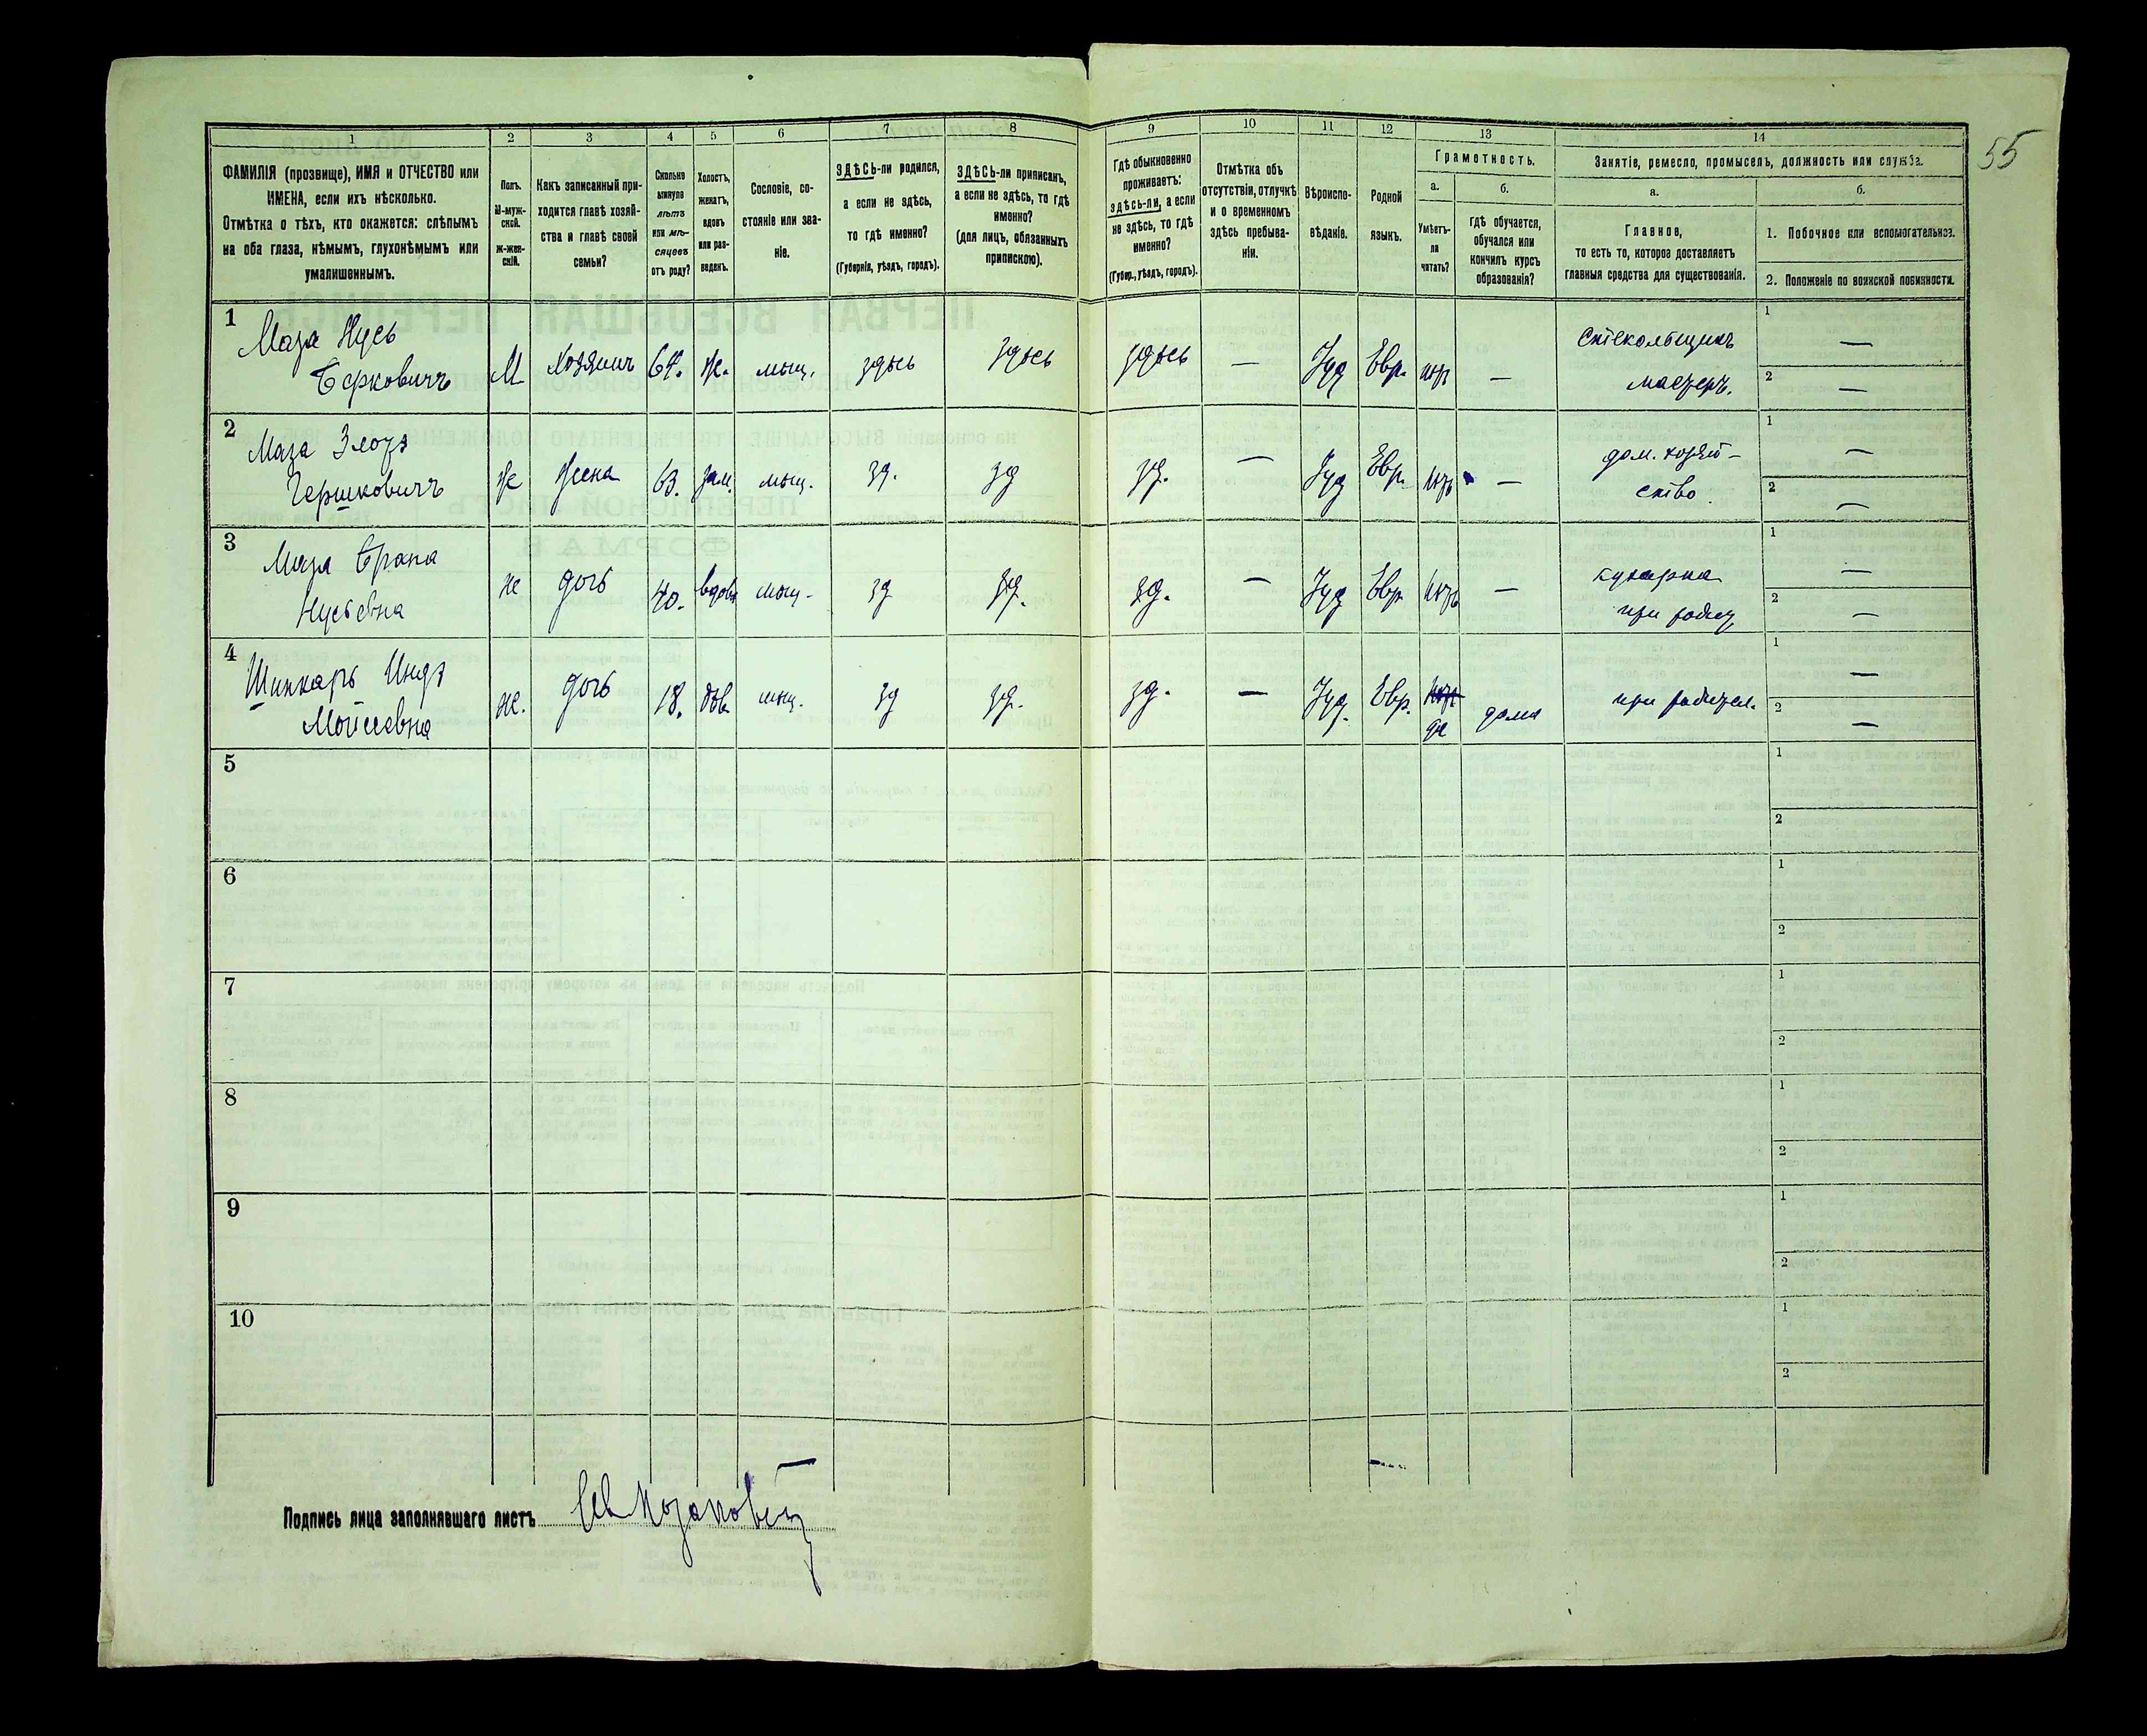 55
1 2 3 4 5 6 7 8 9 10 11 12 13 14
ФАМИЛІЯ (прозвище), ИМЯ и ОТЧЕСТВО или
ИМЕНА, если ихъ нѣсколько.
Отмѣтка о тѣхъ, кто окажется: слѣпымъ
на оба глаза, нѣмымъ, глухонѣмымъ или
умалишеннымъ.
Полъ.
М-муж-
ской.
Ж-жен-
скій.
Какъ записанный при-
ходится главѣ хозяй-
ства и главѣ своей
семьи?
Сколько
минуло
лѣтъ
или мѣ-
сяцевъ
отъ роду?
Холостъ,
женатъ,
вдовъ
или раз-
веденъ.
Сословіе, со-
стояніе или зва-
ніе.
ЗДѢСЬ-ли родился,
а если не здѣсь,
то гдѣ именно?
(Губернія, уѣздъ, городъ).
ЗДѢСЬ-ли приписанъ,
а если не здѣсь, то гдѣ
именно?
(для лицъ, обязанныхъ
припискою).
Гдѣ обыкновенно
проживаетъ:
здѣсь-ли, а если
не здѣсь, то гдѣ
именно?
(Губер., уѣздъ, городъ).
Отмѣтка объ
отсутствіи, отлучкѣ
и о временномъ
здѣсь пребыва-
ніи.
Вѣроиспо-
вѣданіе.
Родной
языкъ.
Грамотность.
а.
Умѣетъ-
ли
читать?
б.
Гдѣ обучается,
обучался или
кончилъ курсъ
образованія?
Занятіе, ремесло, промыселъ, должность или служба.
а.
Главное,
то есть то, которое доставляетъ
главныя средства для существованія.
б.
1. Побочное или вспомогательное.
2. Положеніе по воинской повинности.
1
Маза Нусь
Берковичъ
М Хозяинъ 64. Ж. мѣщ. здѣсь здѣсь здѣсь — Іуд Евр. нѣтъ —
Стекольщикъ
мастеръ.
1 —
2 —
2
Маза Злота
Гершковичъ
Ж Жена 63. зам. мѣщ. зд. зд зд. — Іуд Евр. нѣтъ —
дом. хозяй-
ство
1 —
2 —
3
Маза Брана
Нусьевна
Ж дочь 40. вдова мѣщ. зд зд. зд. — Іуд Евр нѣтъ —
кухарка
1 —
2 —
4
Шинкарь Индя
Мойсеевна
Ж. дочь 18. дѣв. мѣщ. зд зд. зд. — Іуд. Евр. нѣтъ
да дома
при родител.
1 —
2 —
5
1
2
6
1
2
7
1
2
8
1
2
9
1
2
10
1
2
Подпись лица заполнявшаго листъ